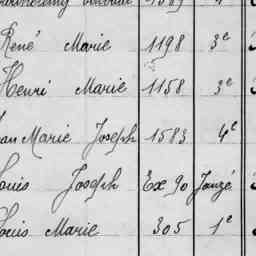 René Marie 1198 3e
Henri Marie 1158 3e
Jean Marie Joseph 1583 4e
Louis Joseph Ex 90 Janzé
Louis Marie 305 1e